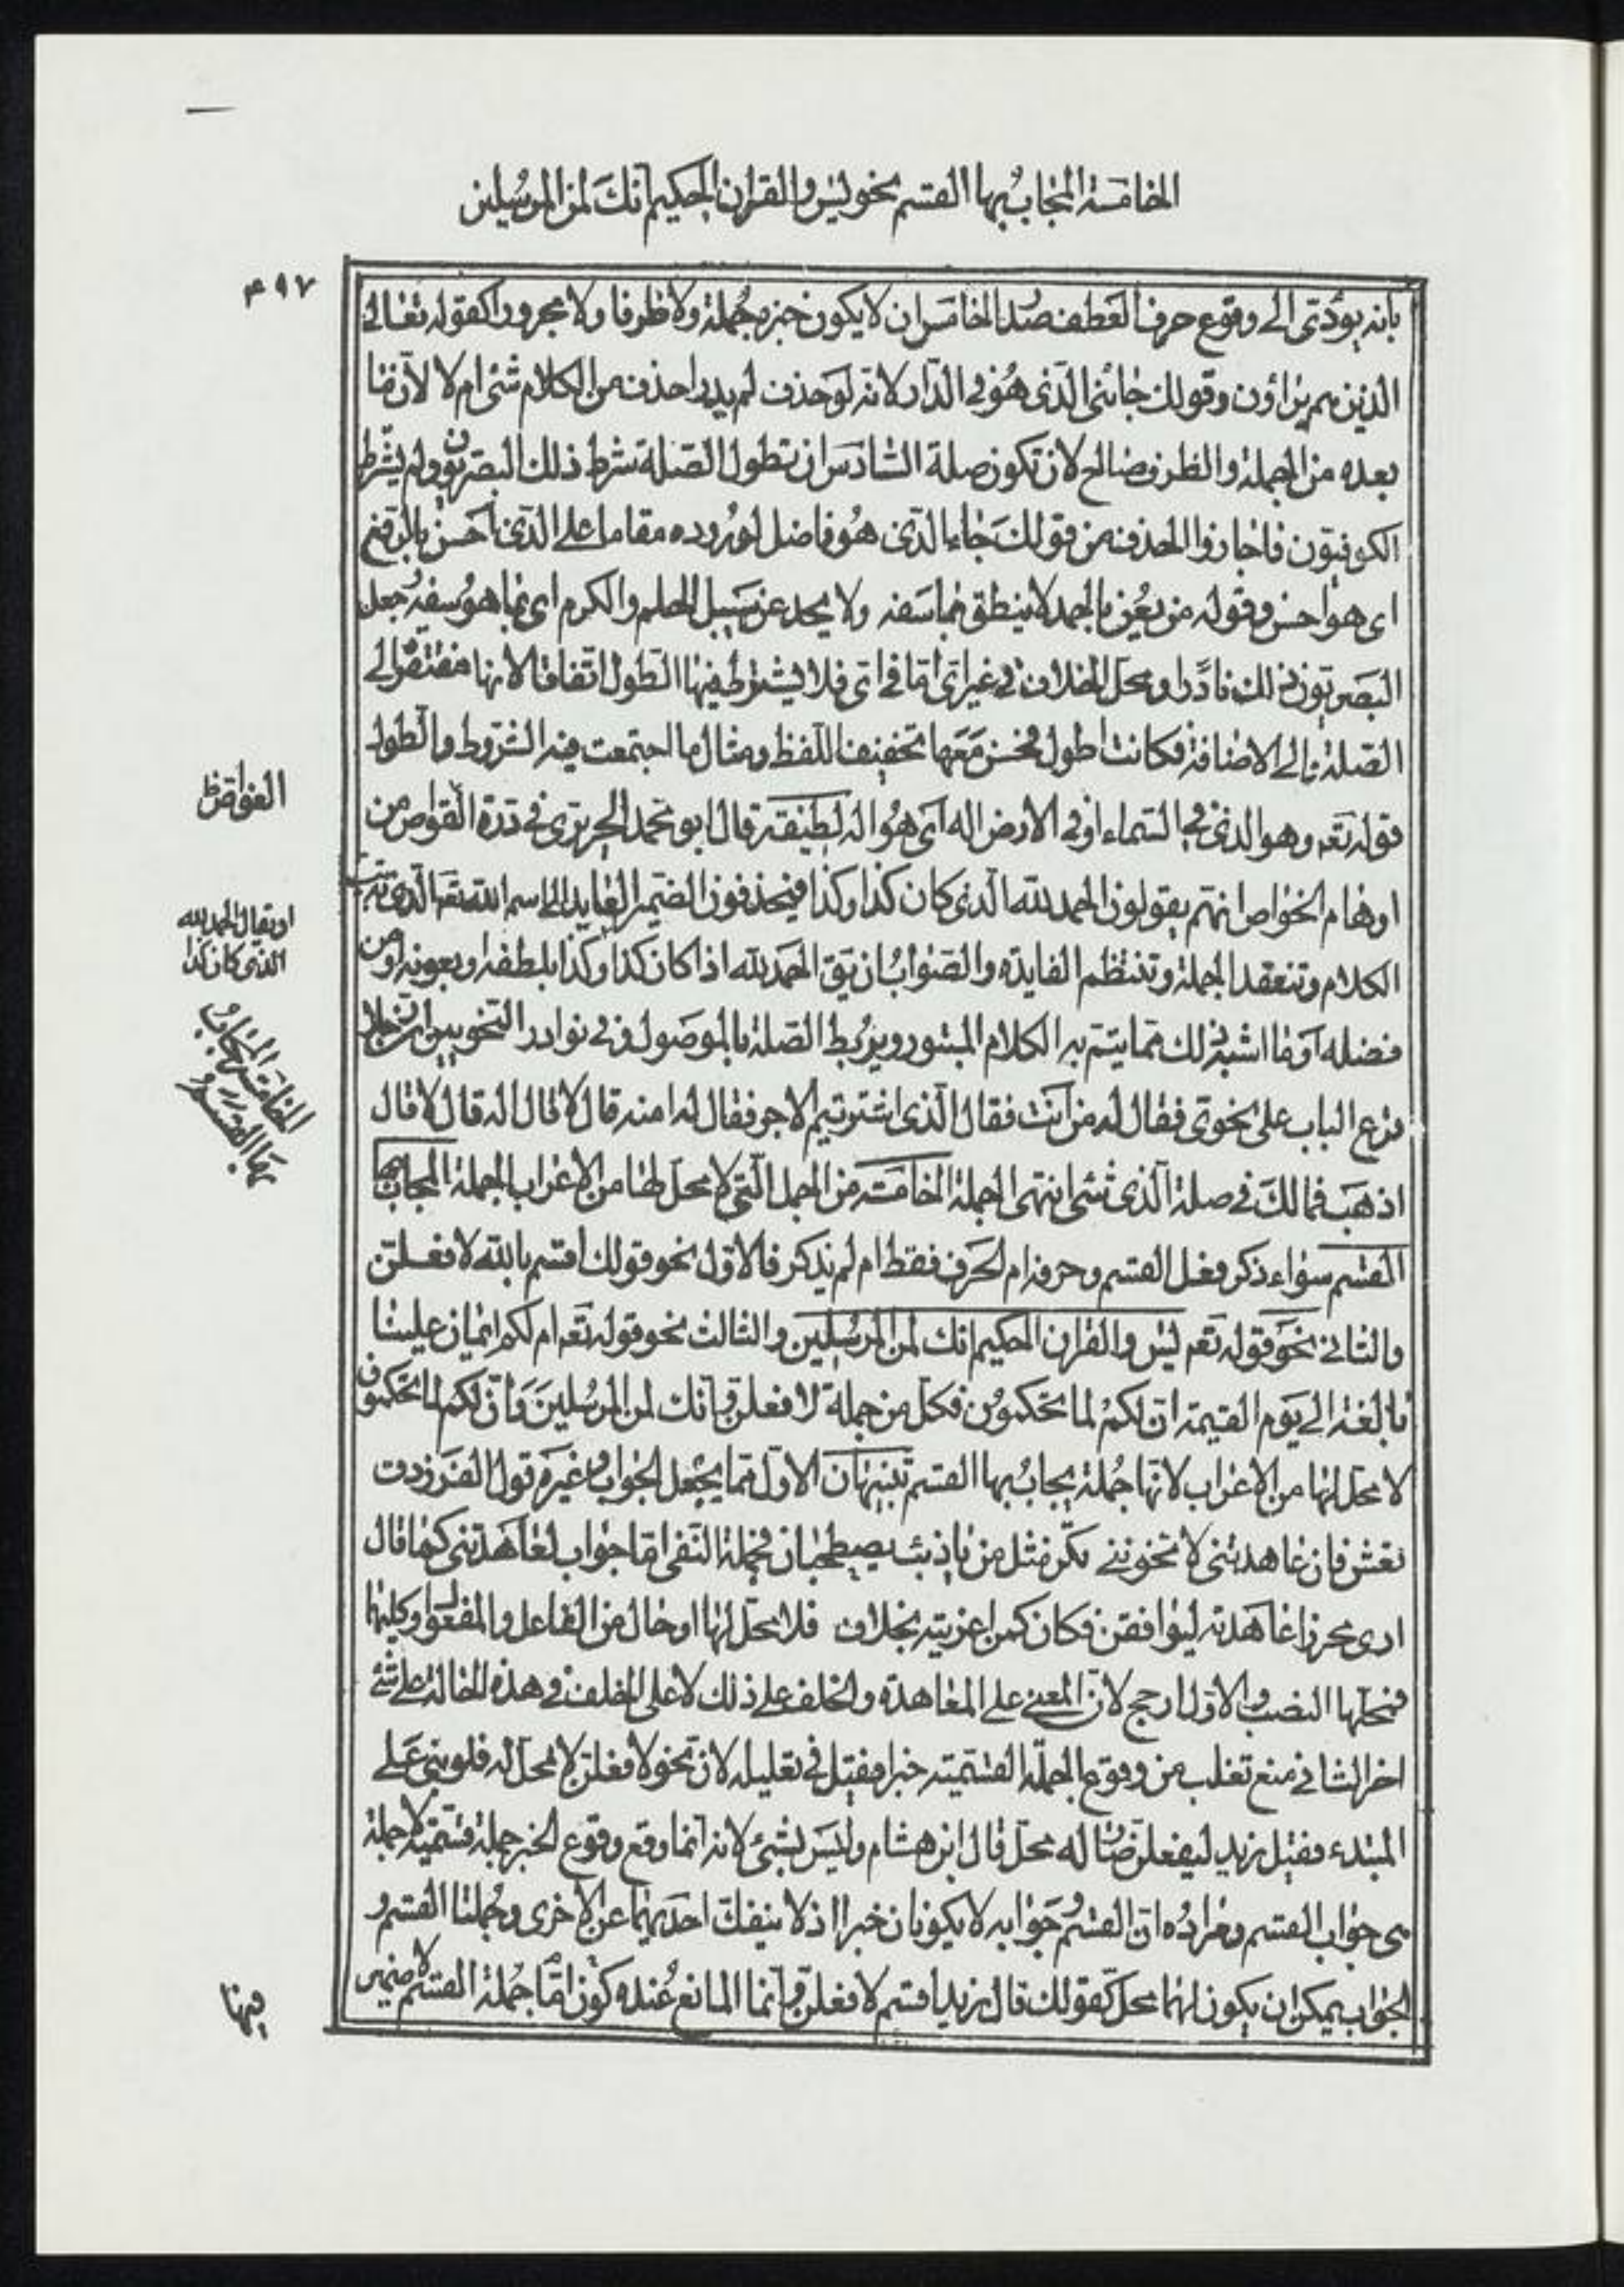 الخامسة المجاب بها القسم نحو يس والقران الحكيم انك لمن المرسلين
٤٩٧
بانه يؤدى الى وقوع حرف العطف صدرا الخامس ان لا يكون خبره جملة ولا ظرفا ولا مجرورا كقوله تعالى
الذين هم يراؤن وقولك جائنى الذى هو فى الدار لانه لو حذف لم يدر احذف من الكلام شئ ام لا لان ما
بعده من الجملة والظرف صالح لان تكون صلة السادس ان تطول الصلة شرط ذلك البصريون ولم يشرط
الكوفيون فاجازوا الحذف من قولك جاء الذى هو فاضل لوروده مقاما على الذى احسن بالرفع
اى هو احسن وقوله من يعن بالحمد لا ينطق بما سفه ولا يحد عن سبيل الحلم والكرم اى بما هو سفه جعل
البصريون ذلك نادرا ومحل الخلاف فى غير اى اما فى اى فلا يشترط فيها الطول اتفاقا لانها مفتقرة الى
الصلة والى الاضافة فكانت اطول فحسن معها تخفيفا للفظ ومثال ما اجتمعت فيه الشروط والطول
قوله تعه وهو الذى فى السماء اوفى الارض اله اى هو اله لطيفة قال ابو محمد الحريرى فى درة الغواص من
اوهام الخواص انهم يقولون الحمد لله الذى كان كذا وكذا فيحذفون الضمير العايد الى اسم الله تعه الذى به يتم
الكلام وتنعقد الجملة وتنتظم الفايدة والصواب ان يق الحمد لله اذا كان كذا وكذا بلطفه او بعونه او من
فضله او ما اشبه ذلك مما يتم به الكلام المبتور ويربط الصلة بالموصول وفى نوادر النحويين ان رجلا
قرع الباب على نحوى فقال له من انت فقال الذى اشتريتم الاجر فقال له امنه قال لا قال اله قال لا قال
اذهب فمالك فى صلة الذى شئ انتهى الجملة الخامسة من الجمل التى لا محل لها من الاعراب الجملة المجاب بها
القسم سواء ذكر فعل القسم وحرفه ام الحرف فقط ام لم يذكر فالاول نحو قولك اقسم بالله لافعلن
والثانى نحو قوله تعه يس والقران الحكيم انك لمن المرسلين والثالث نحو قوله تعه ام لكم ايمان علينا
بالغة الى يوم القيمة ان لكم لما تحكمون فكل من جملة لافعلن وانك لمن المرسلين وان لكم لما تحكمون
لا محل لها من الاعراب لانها جملة يجاب بها القسم تنبيهان الاول مما يحتمل الجواب وغيره قول الفرزدق
تعش فان عاهدتنى لا تخوننى نكن مثل من ياذئب يصطحبان فجملة النفى اما جواب لعاهدتنى كما قال
ارى محرزا عاهدته ليوافقن فكان كمن اغريته بخلاف فلا محل لها او حال من الفاعل والمفعول او كليهما
فمحلها النصب والاول ارجح لان المعنى على المعاهدة والحلف على ذلك لا على الحلف فى هذه الحالة على شئ
اخر الثانى منع ثعلب من وقوع الجملة القسمية خبرا فقيل فى تعليله لان نحو لافعلن لا محل له فلو بنى على
المبتدء فقيل زيد ليفعلن صار له محل قال ابن هشام وليس بشئ لانه انما وقع وقوع الخبر جملة قسمية لا جملة
هى جواب القسم ومراده ان القسم وجوابه لا يكونان خبرا اذ لا ينفك احديهما عن الاخرى وجملتا القسم و
الجواب يمكن ان يكون لهما محل كقولك قال زيد اقسم لافعلن وانما المانع عنده كون اما جملة القسم لا ضمير
الغواص ظ
او يقال الحمد لله
الذى كان كذا
الخامسة المجاب
بها القسم
فيها